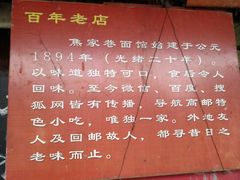 百年老店
焦家巷面馆始建于公元
1894年（光绪二十年）。
以味道独特可口，食后令人
回味。至今微信、百度、搜
狐网皆有传播 导航高邮特
色小吃，唯独一家。外地友
人及回邮故人，都寻昔日之
老味而止。